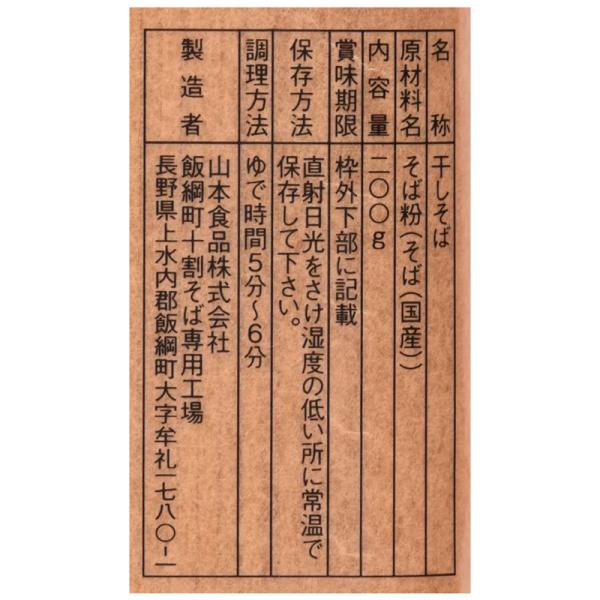 名称 干しそば
原材料名 そば粉(そば(国産))
内容量 二〇〇g
賞味期限 枠外下部に記載
保存方法 直射日光をさけ湿度の低い所に常温で
保存して下さい。
調理方法 ゆで時間5分〜6分
製造者 山本食品株式会社
飯綱町十割そば専用工場
長野県上水内郡飯綱町大字牟礼一七八〇-一